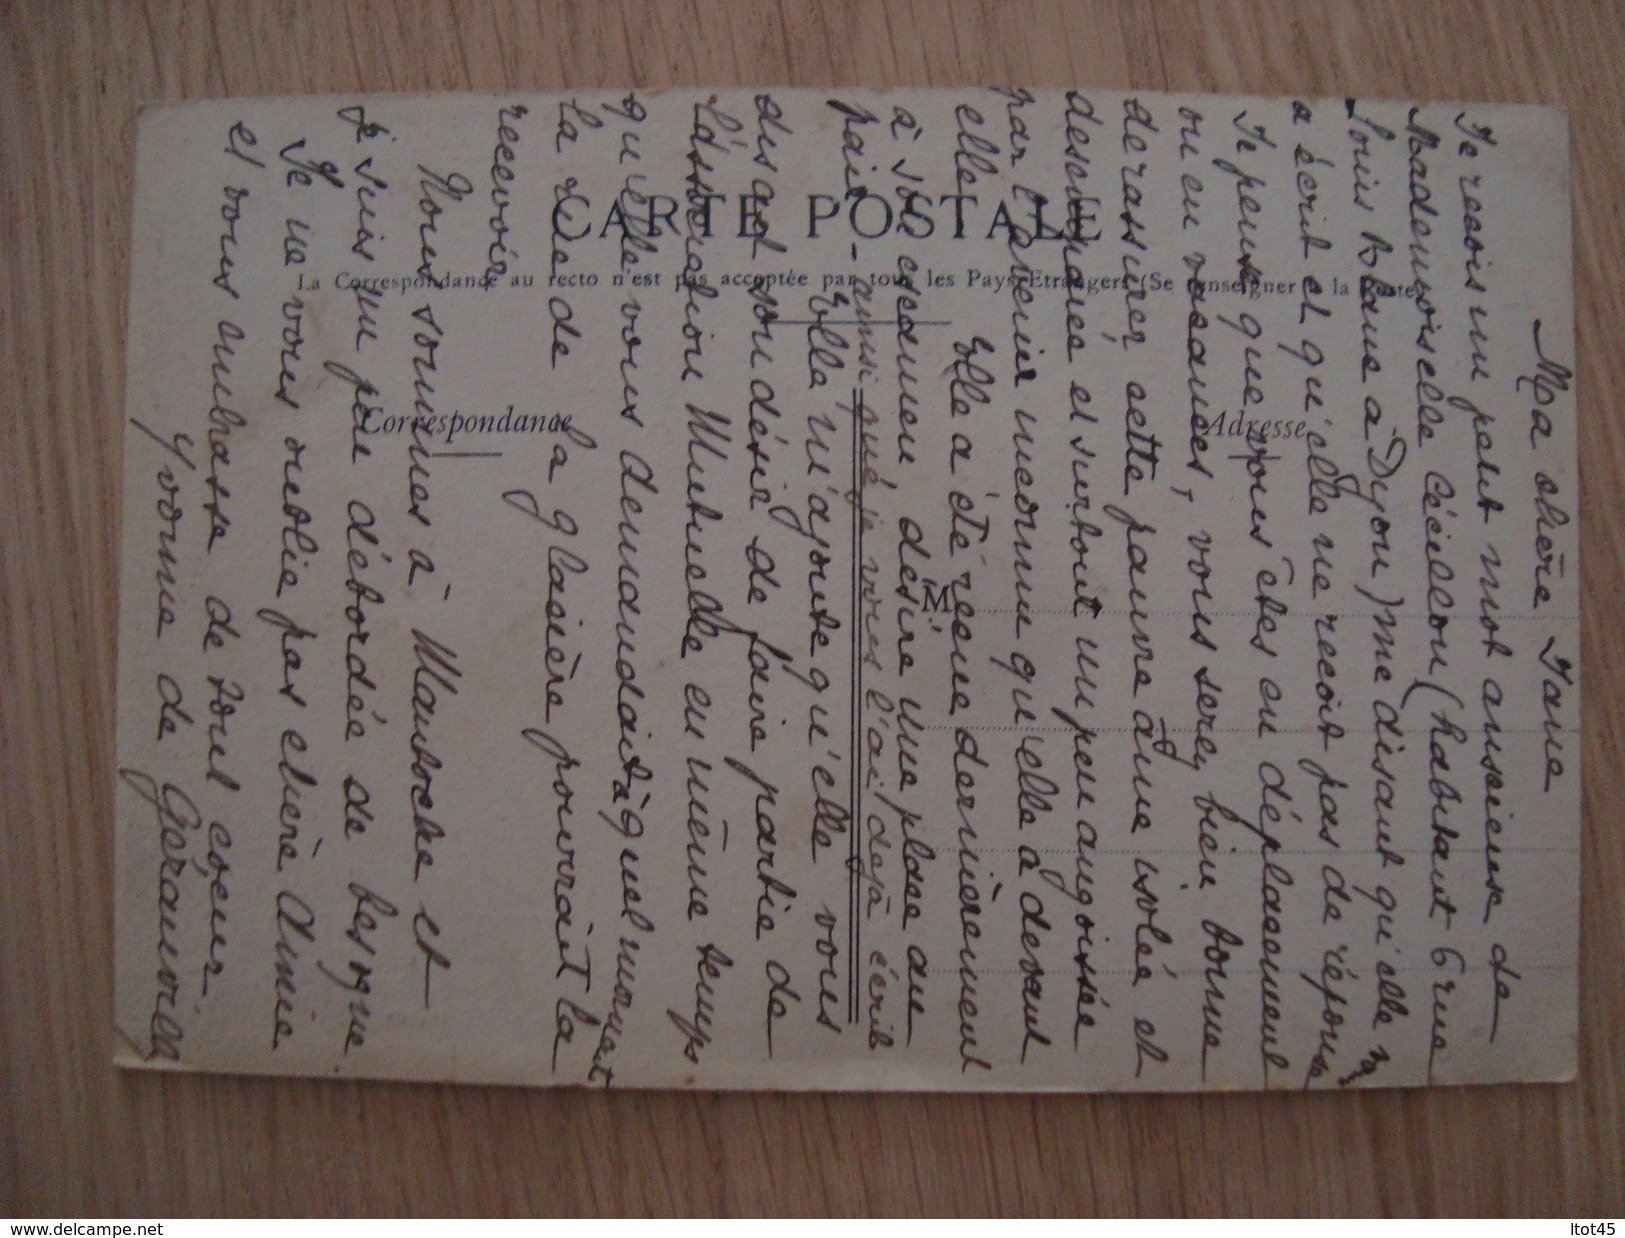 CARTE POSTALE
La Correspondance au recto n'est pas acceptée par tous les Pays Etrangers (Se renseigner à la Poste)
Correspondance
Adresse
M
Ma chère Jane
Je reçois un petit mot anxieux de
Mademoiselle Cécillon (habitant 6 rue
Louis Blanc à Dijon) me disant qu'elle v
a écrit et qu'elle ne reçoit pas de réponse
Je pense que vous êtes en déplacement
ou en vacances, vous serez bien bonne
de rassurer cette pauvre âme isolée et
desemparée et surtout un peu angoissée
par l'avenir inconnu qu'elle a devant
elle. Elle a été reçue dernièrement
à son examen désire une place au
pair - ainsi que je vous l'ai déjà écrit
Elle m'ajoute qu'elle vous
disait son désir de faire partie de
l'association Mutuelle en même temps
qu'elle vous demandait à quel moment
la rue de la glacière pourrait la
recevoir
Nous sommes à Mantoche et
je suis un peu débordée de besogne
Je ne vous oublie pas chère Amie
et vous embrasse de tout coeur.
Yvonne de Gérauvilla
www.delcampe.net
ltot45